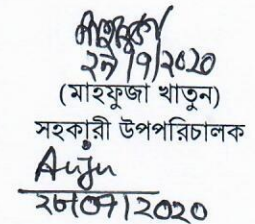 ২৯/৭/২০২০
(মাহফুজা খাতুন)
সহকারী উপপরিচালক
Anju
২৯/০৭/২০২০